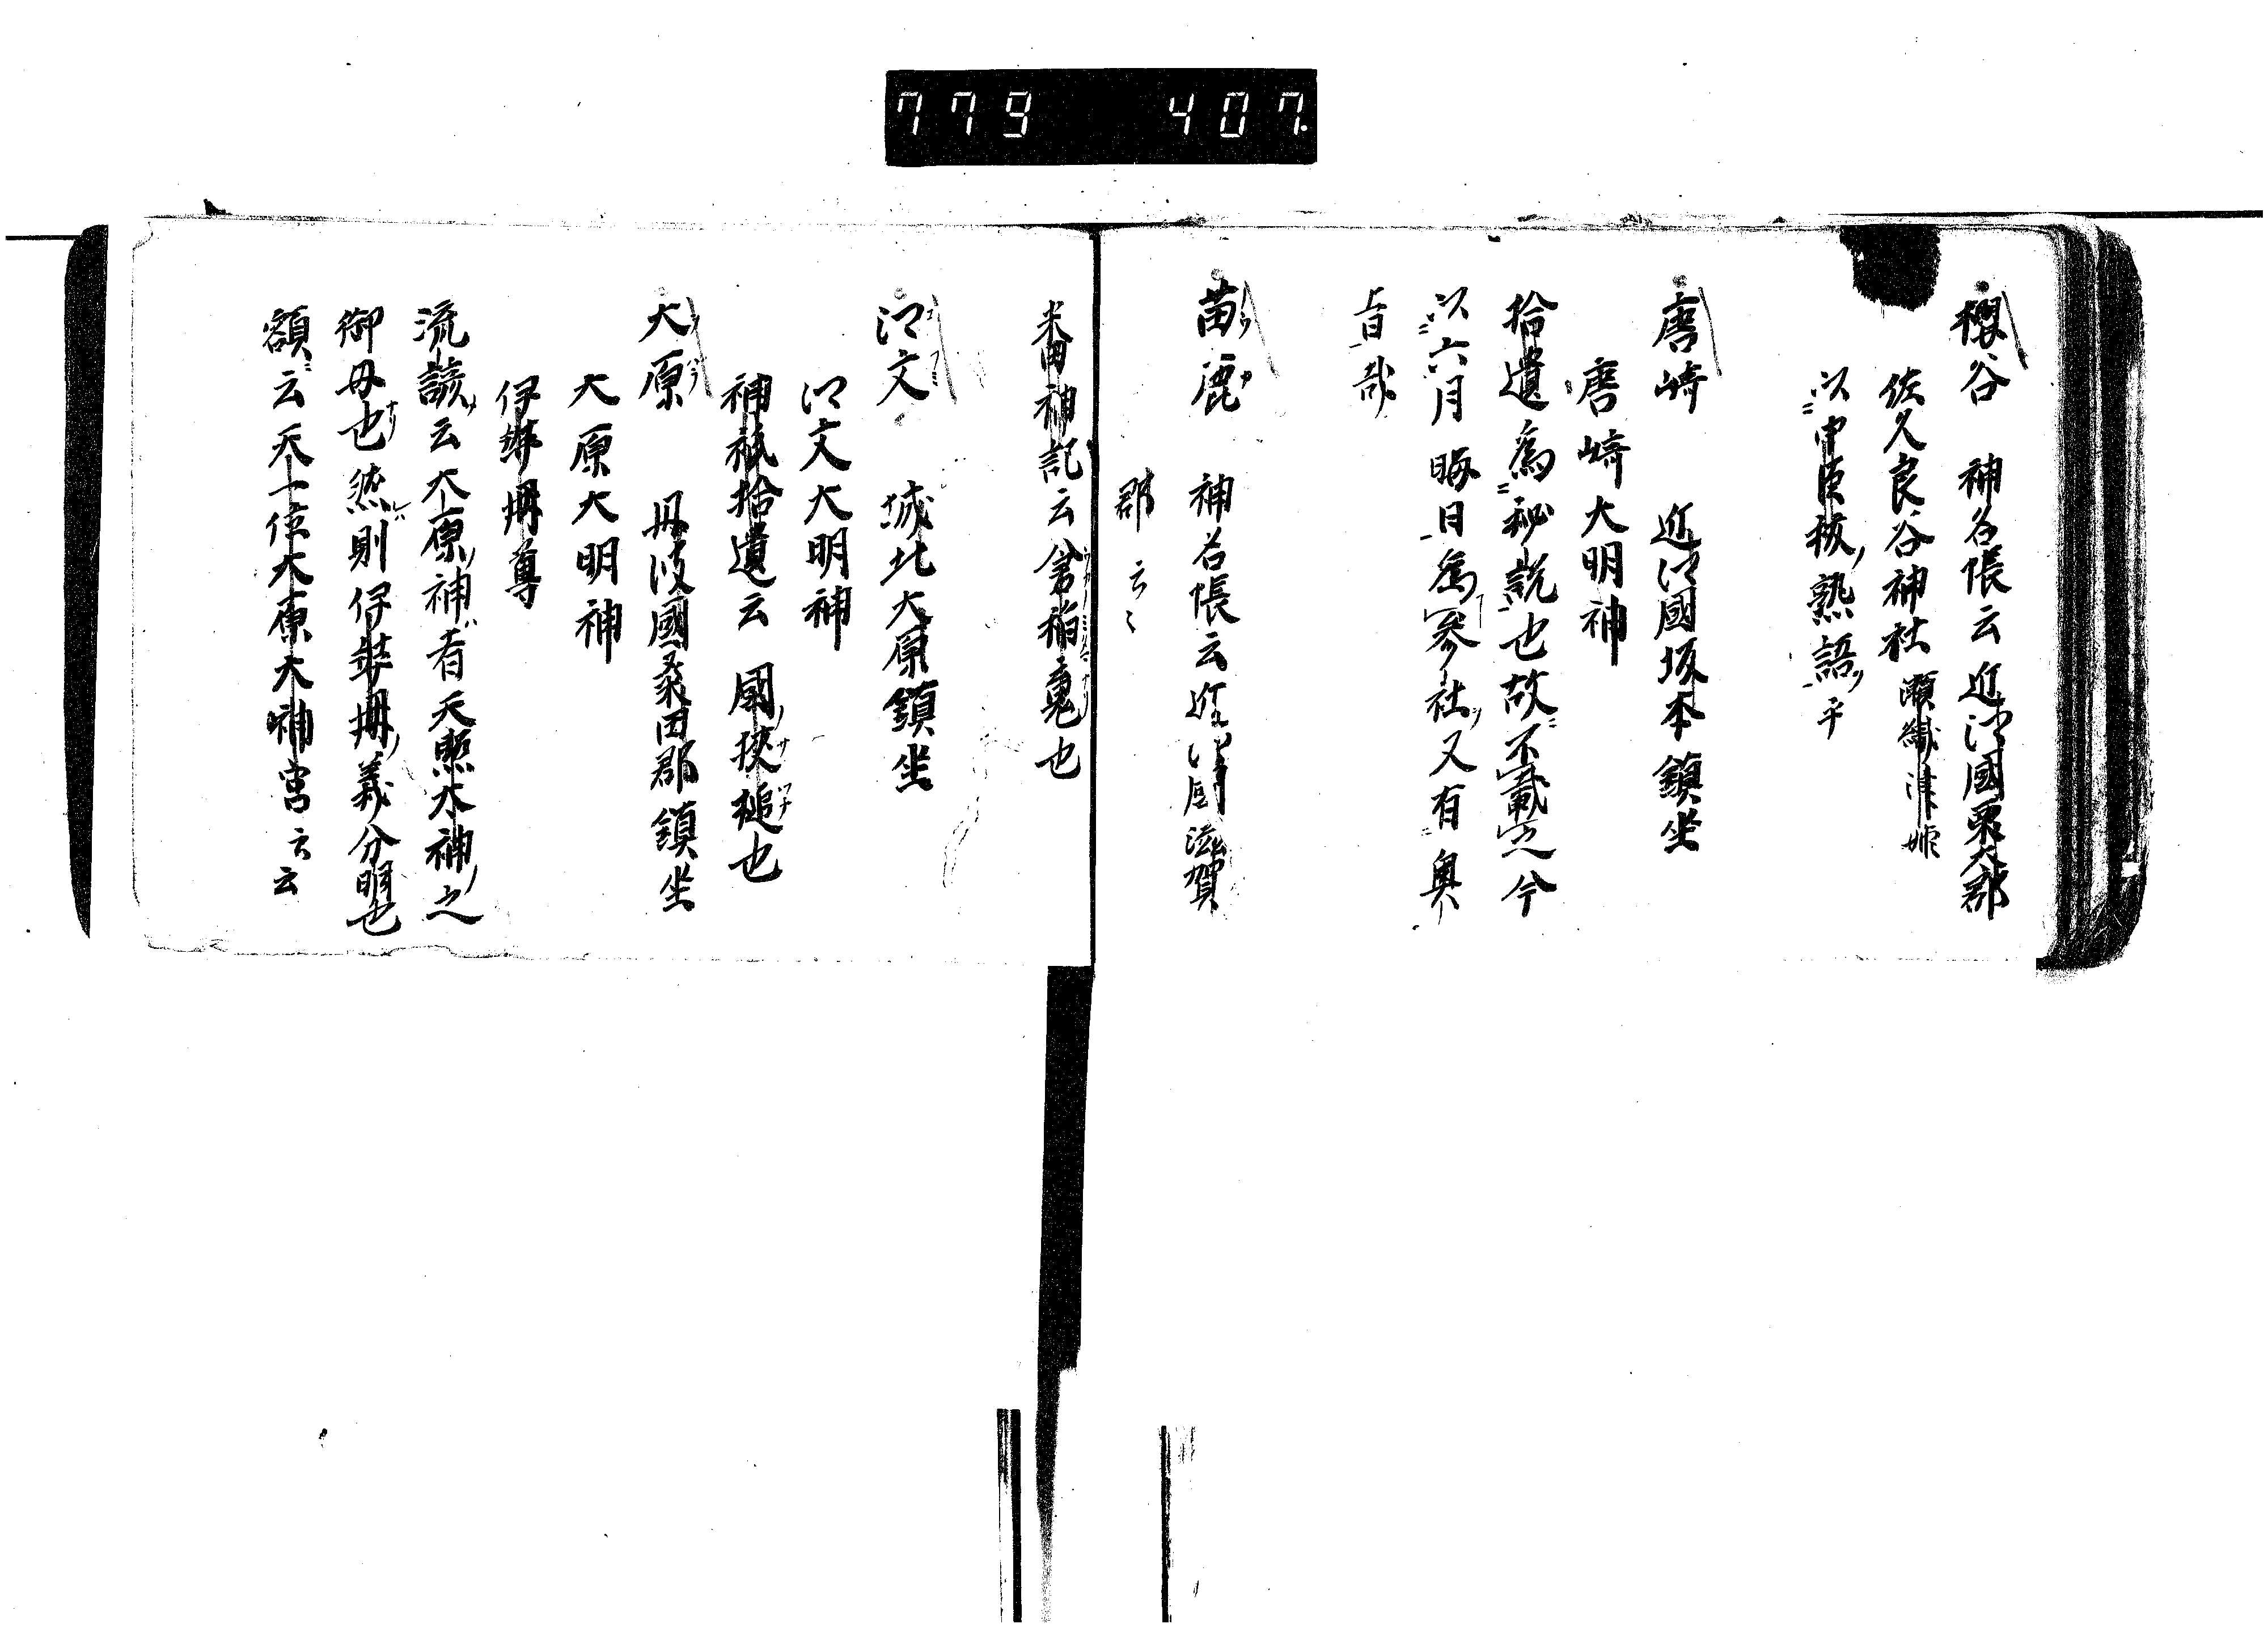 779 407.
櫻谷 神名帳云近江國栗太郡
佐久良谷神社 瀬織津姫
以中臣祓熟語乎
唐崎 近江國坂本鎮坐
唐崎大明神
拾遺為秘説也故不載之今
以六月晦日為参社又有奥
旨哉
苗鹿 神名帳云近江國滋賀
郡云々
番神記云倉稲魂也
江文 城北大原鎮坐
江文大明神
神祇拾遺云 國狭槌也
大原 丹波國桑田郡鎮坐
大原大明神
伊弉冊尊
流談云大原神者天照大神之
御母也然則伊弉冊義分明也
額云天一位大原大神宮云云